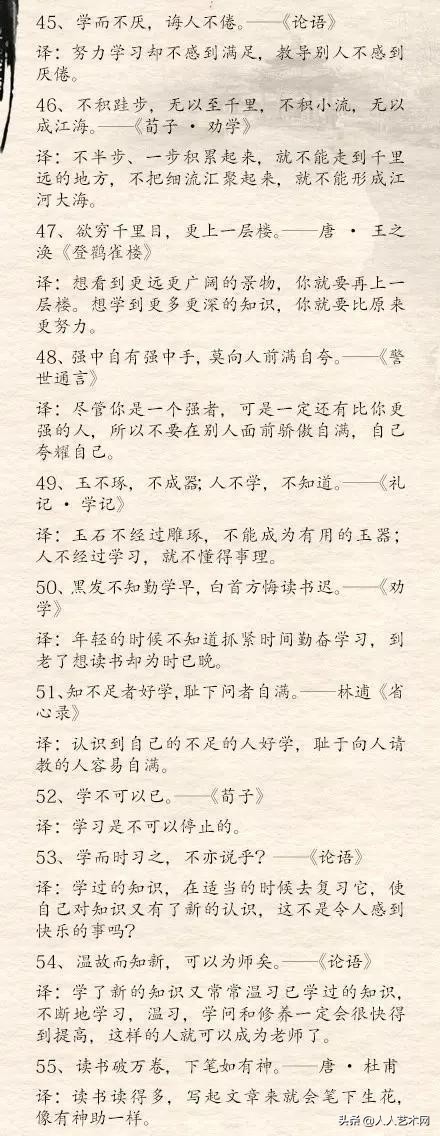 45、学而不厌，诲人不倦。——《论语》
译：努力学习却不感到满足，教导别人不感到
厌倦。
46、不积跬步，无以至千里，不积小流，无以
成江海。——《荀子 · 劝学》
译：不半步、一步积累起来，就不能走到千里
远的地方，不把细流汇聚起来，就不能形成江
河大海。
47、欲穷千里目，更上一层楼。——唐 · 王之
涣《登鹳雀楼》
译：想看到更远更广阔的景物，你就要再上一
层楼。想学到更多更深的知识，你就要比原来
更努力。
48、强中自有强中手，莫向人前满自夸。——《警
世通言》
译：尽管你是一个强者，可是一定还有比你更
强的人，所以不要在别人面前骄傲自满，自己
夸耀自己。
49、玉不琢，不成器；人不学，不知道。——《礼
记 · 学记》
译：玉石不经过雕琢，不能成为有用的玉器；
人不经过学习，就不懂得事理。
50、黑发不知勤学早，白首方悔读书迟。——《劝
学》
译：年轻的时候不知道抓紧时间勤奋学习，到
老了想读书却为时已晚。
51、知不足者好学，耻下问者自满。——林逋《省
心录》
译：认识到自己的不足的人好学，耻于向人请
教的人容易自满。
52、学不可以已。——《荀子》
译：学习是不可以停止的。
53、学而时习之，不亦说乎？——《论语》
译：学过的知识，在适当的时候去复习它，使
自己对知识又有了新的认识，这不是令人感到
快乐的事吗？
54、温故而知新，可以为师矣。——《论语》
译：学了新的知识又常常温习已学过的知识，
不断地学习，温习，学问和修养一定会很快得
到提高，这样的人就可以成为老师了。
55、读书破万卷，下笔如有神。——唐 · 杜甫
译：读书读得多，写起文章来就会笔下生花，
像有神助一样。
头条 @人人艺术网